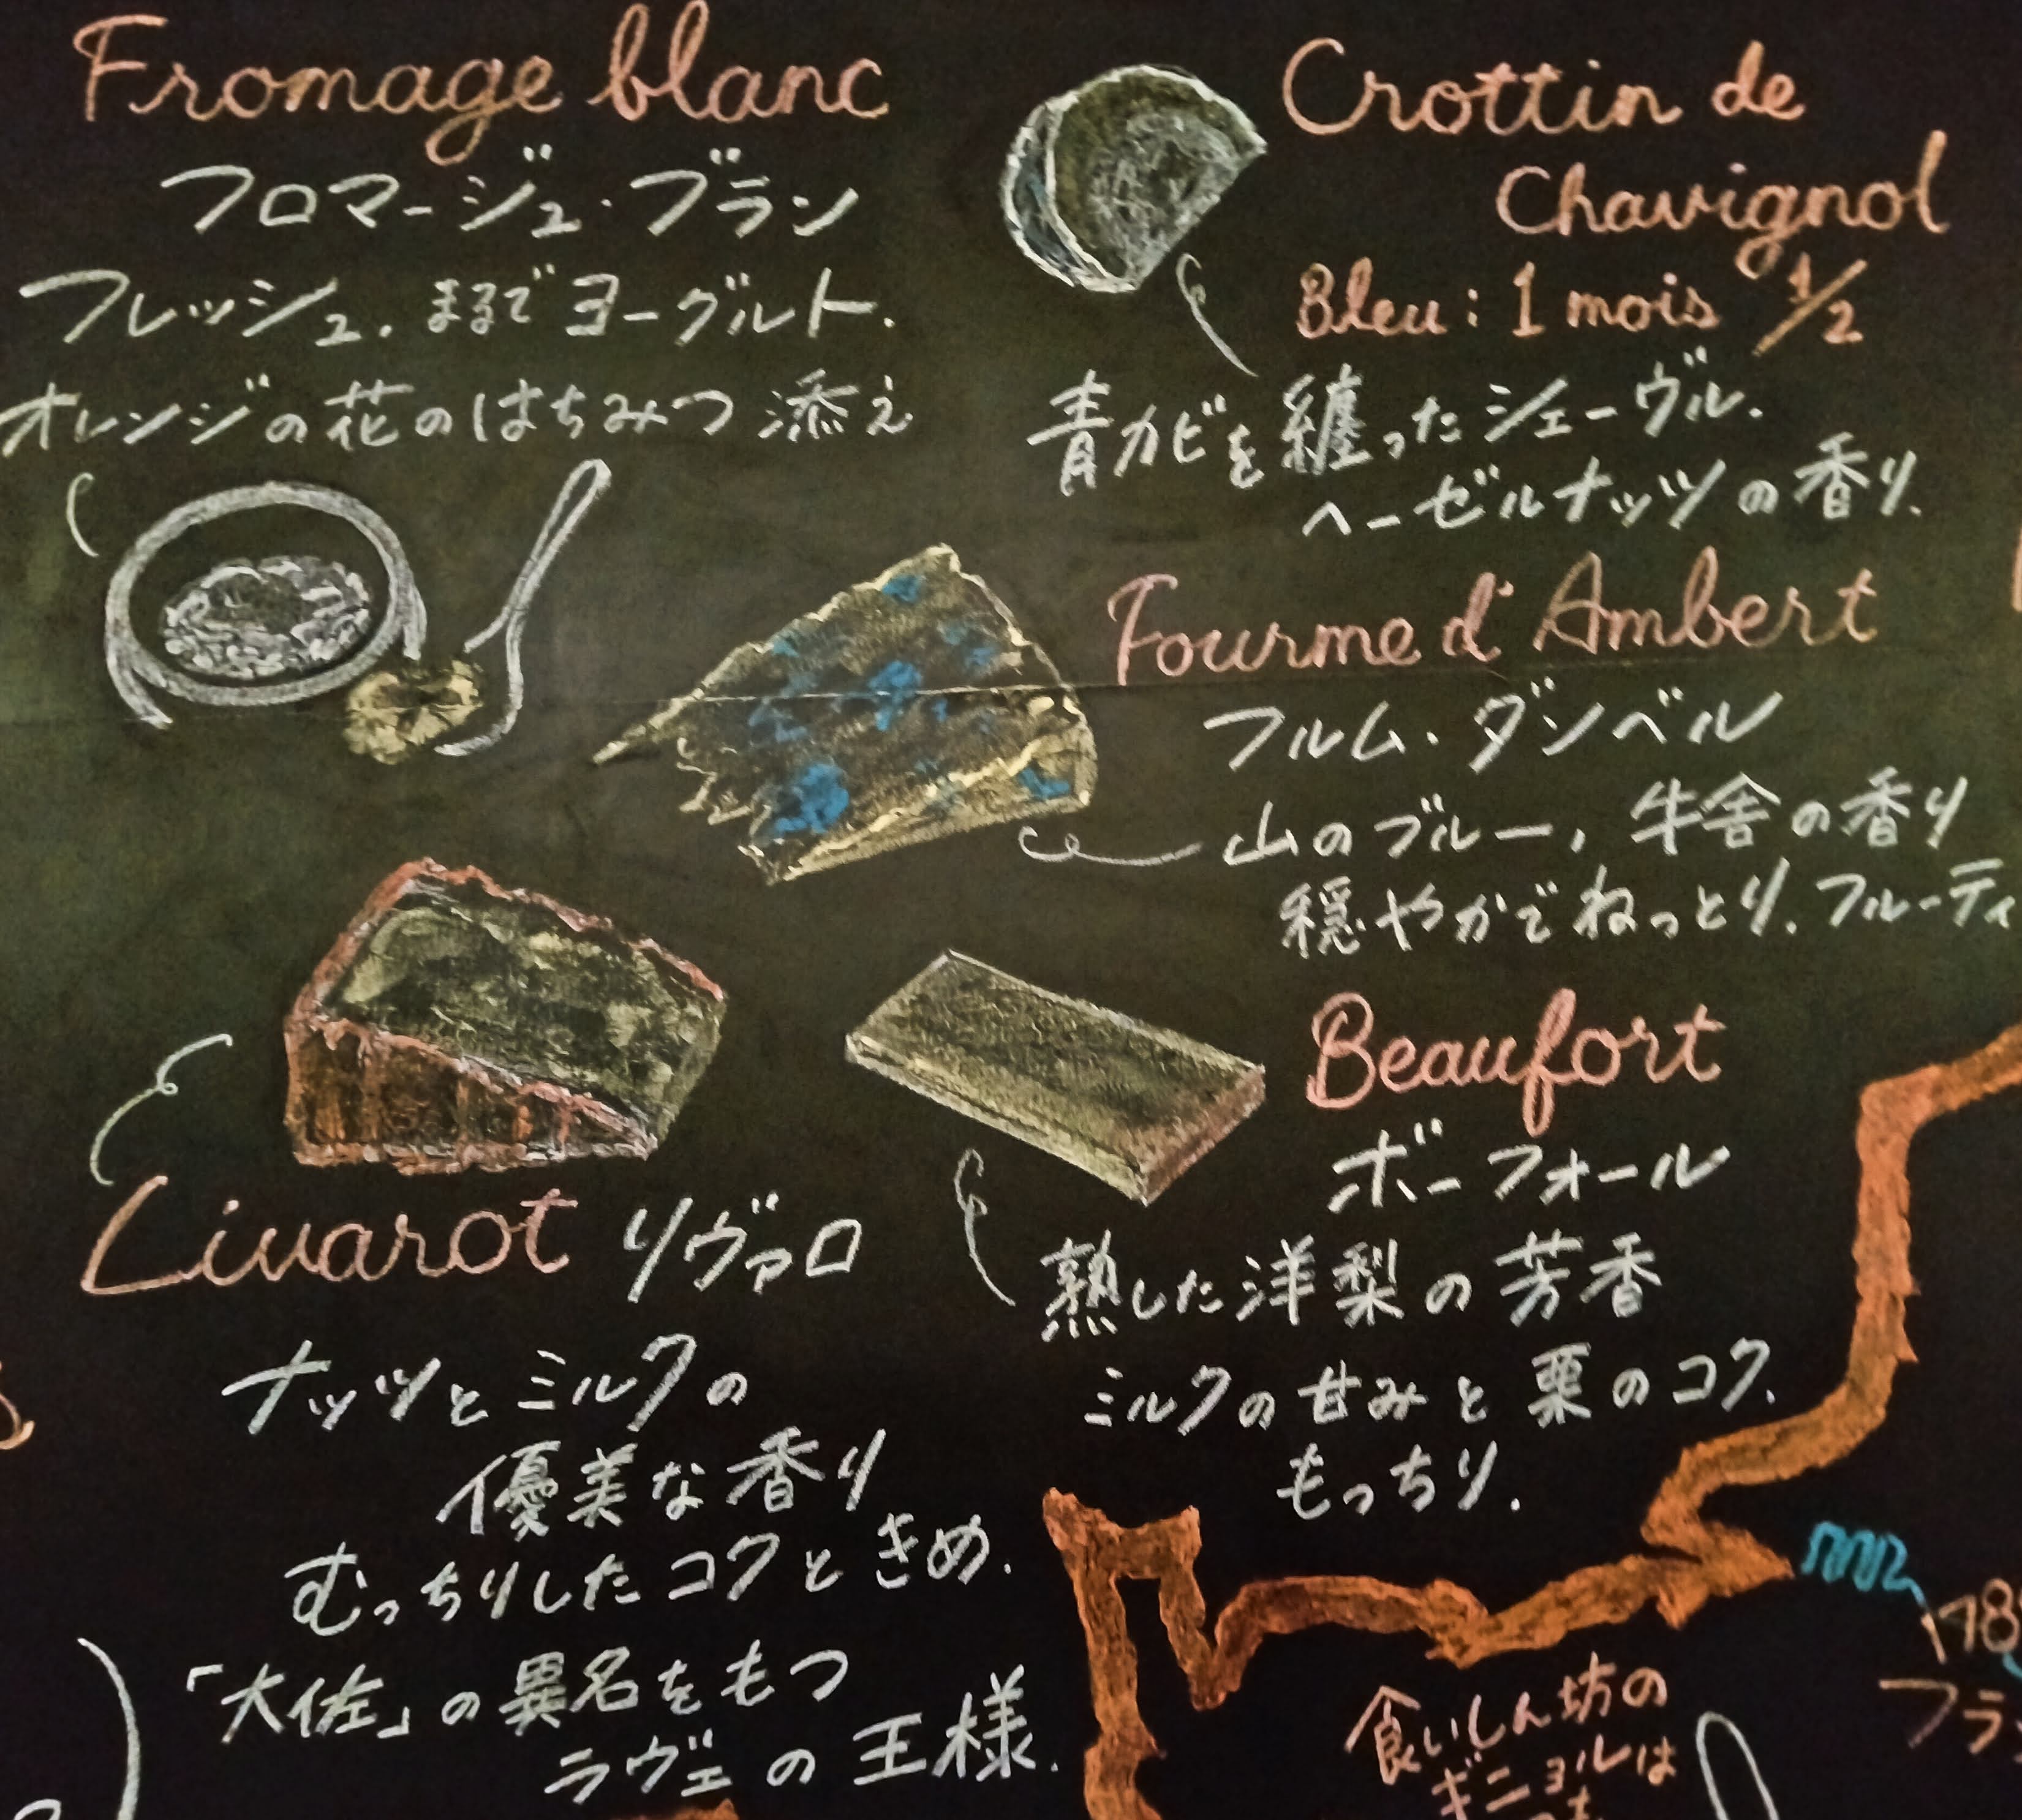 Fromage blanc
フロマージュ・ブラン
フレッシュ. まるでヨーグルト.
オレンジの花のはちみつ添え
Crottin de
Chavignol
Bleu : 1 mois 1/2
青カビを纏ったシェーヴル.
ヘーゼルナッツの香り.
Fourme d'Ambert
フルム・ダンベル
山のブルー, 牛舎の香り
穏やかでねっとり. フルーティ
Beaufort
ボーフォール
熟した洋梨の芳香
ミルクの甘みと栗のコク.
もっちり.
Livarot リヴァロ
ナッツとミルクの
優美な香り
むっちりしたコクときめ.
「大佐」の異名をもつ
ラヴェの王様.
食いしん坊の
ギニョルは
178
フラ